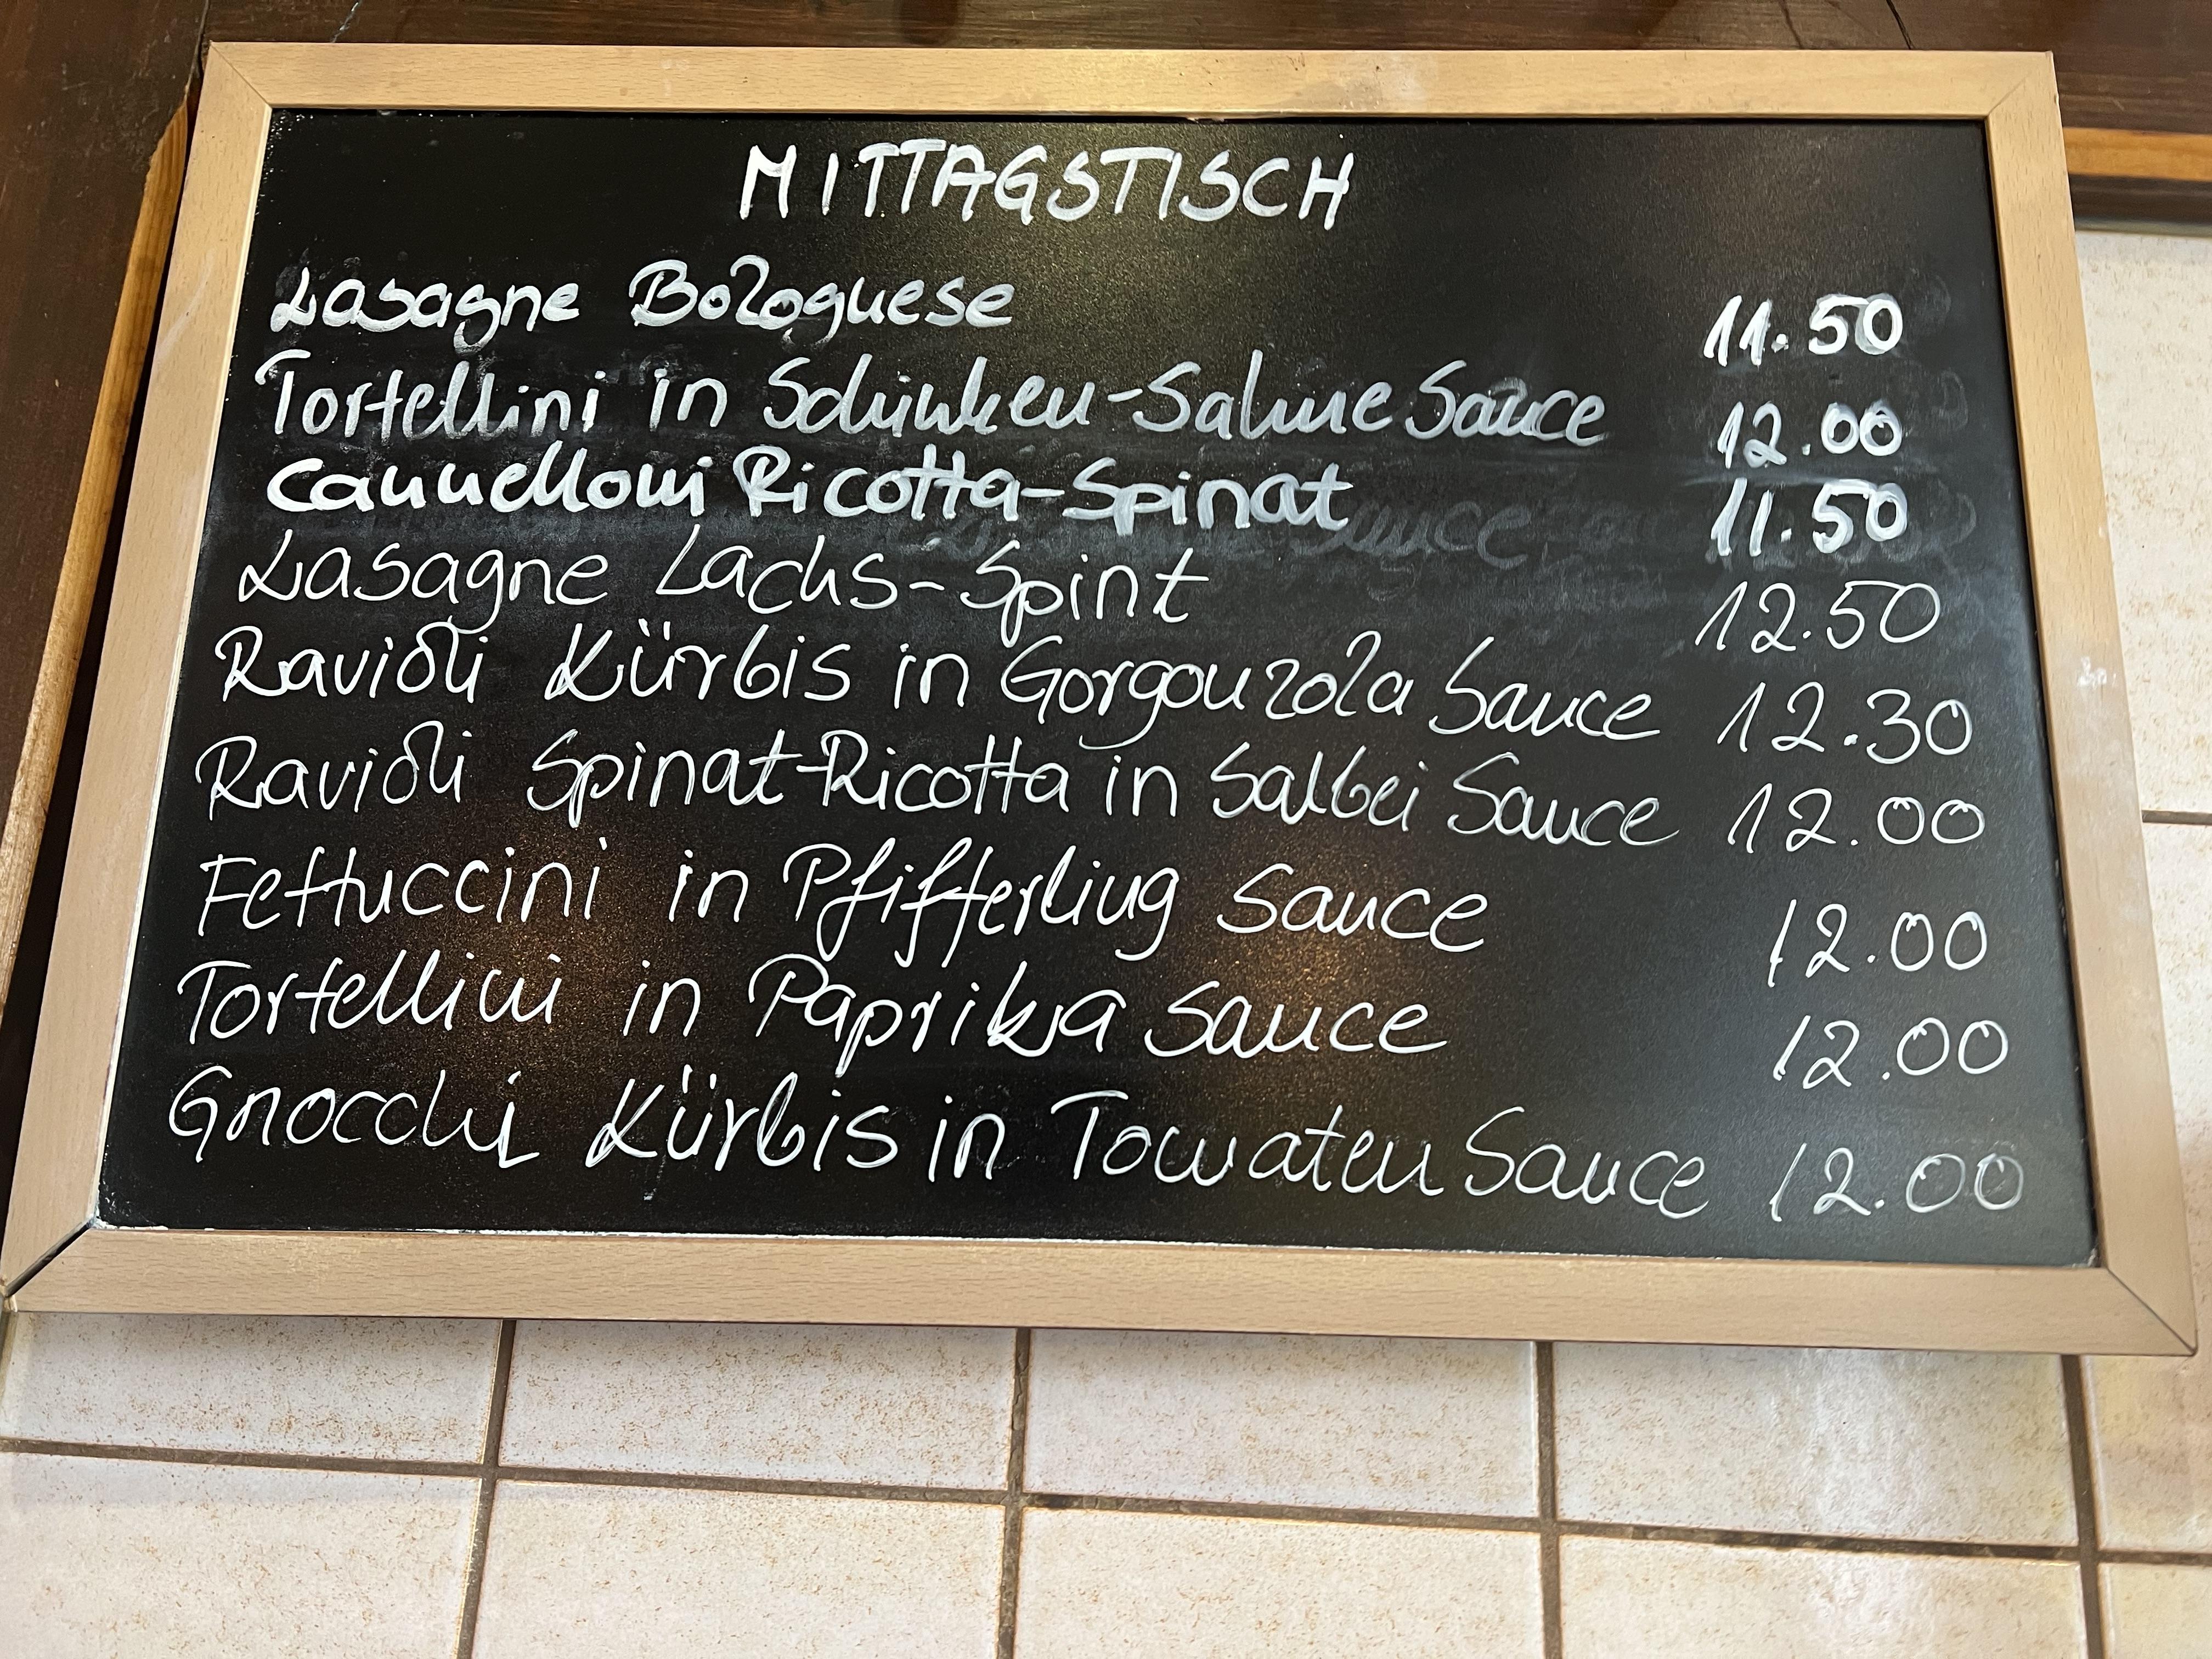 MITTAGSTISCH
Lasagne Bolognese 11.50
Tortellini in Schinken-Sahne Sauce 12.00
Cannelloni Ricotta-Spinat 11.50
Lasagne Lachs-Spint 12.50
Ravioli Kürbis in Gorgonzola Sauce 12.30
Ravioli Spinat-Ricotta in Salbei Sauce 12.00
Fettuccini in Pfifferling Sauce 12.00
Tortellini in Paprika Sauce 12.00
Gnocchi Kürbis in Tomaten Sauce 12.00